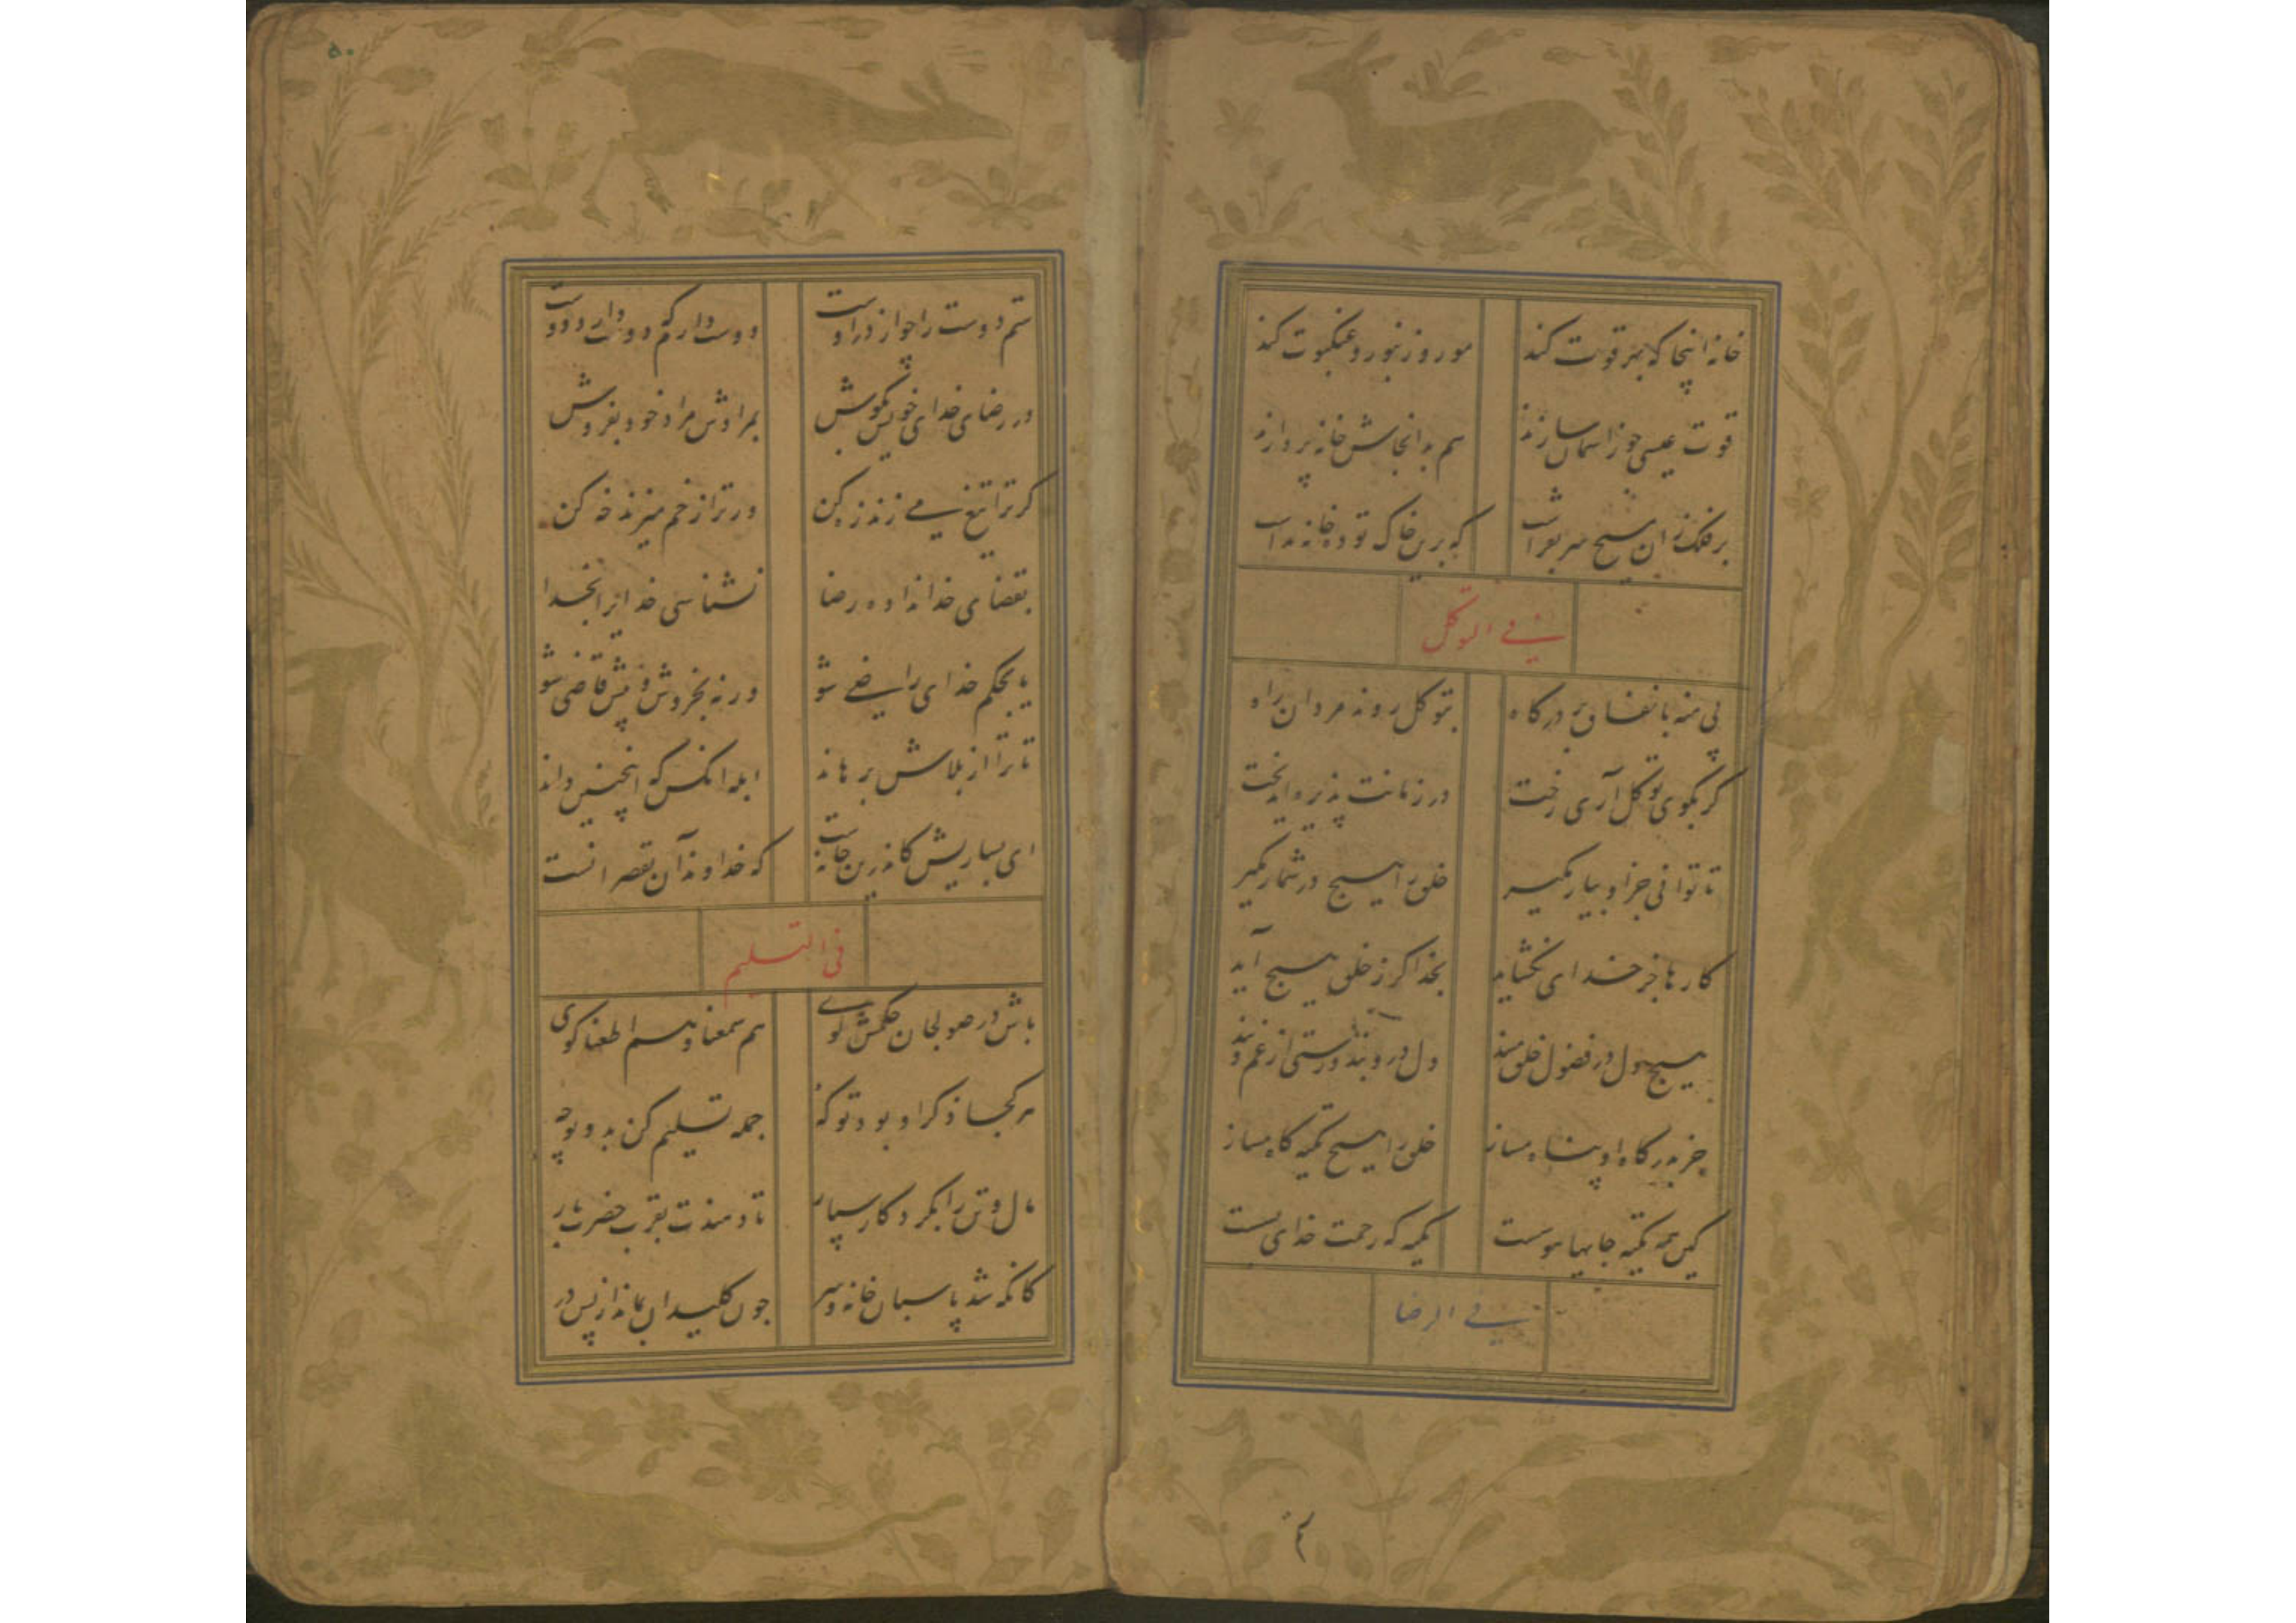 خانه اینجا که بهر قوت کند
مور و زنبور و عنکبوت کند
قوت عیسی چو ز اسمان سازند
هم بدانجاش خانه پردازند
بر فلک زان مسیح سر بفراشت
که برین خاک توده خانه نداشت
فی التوکل
پی منه با نفاق بر درکاه
بتوکل روند مردان راه
کر بکوی توکل آری رخت
در زمانت پذیره اید بخت
تا توانی جز او بیار مکیر
خلق را هیچ در شمار مکیر
کارها جز خدای نکشاید
بخدا کر ز خلق هیچ آید
هیچ دل در فضول خلق مبند
دل درو بند و رستی از غم و بند
جز بدرکاه او پناه مساز
خلق را هیچ تکیه کاه مساز
کین همه تکیه جایها هوست
تکیه که رحمت خدای بست
فی الرضا
دوست دارم که دوست دارد دوست
در رضای خدای خویش بکوش
بمرادش مراد خود بفروش
کر ترا تیغ می زند زه کن
ور ترا زخم میزند خه کن
بقضای خدا نداده رضا
نشناسی خدایرا بخدا
یا بحکم خدای راضی شو
ورنه بخروش و پیش قاضی شو
تا ترا از بلاش برهاند
ابله انکس که اینچنین داند
ای بسا ریش کاندرین جانست
که خداوند آن بقصر انست
فی التسلیم
باش در صولجان حکمش کوی
هم سمعنا و هم اطعنا کوی
هر کجا ذکر او بود تو که
جمله تسلیم کن بدو تو چه
مال و تن را بکردکار سپار
تا دهندت بقرب حضرت بار
کانکه شد پاسبان خانه و سر
چون کلیدان بماند از پس در
۵۰